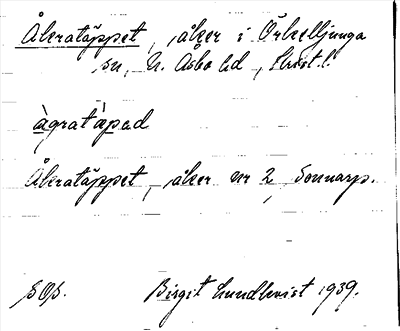 Åkratäppet, åker i Örkelljunga
sn, N. Åsbo hd, Krist. l.
àgratàpad
Åkratäppet, åker nr 2, Sonnarp.
SOP.   Birgit Lundkvist 1939.